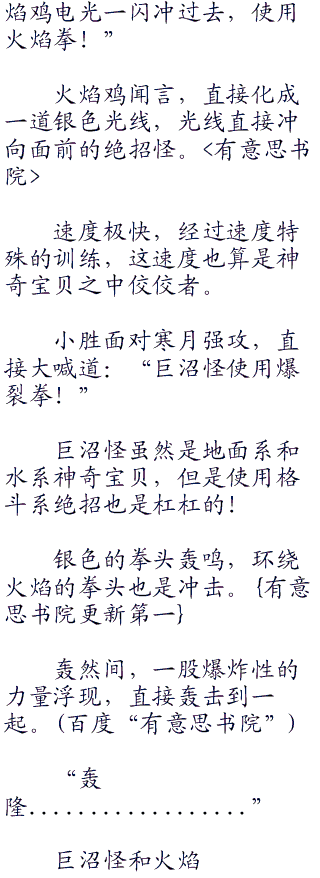 焰鸡电光一闪冲过去，使用
火焰拳！”
火焰鸡闻言，直接化成
一道银色光线，光线直接冲
向面前的绝招怪。<有意思书
院>
速度极快，经过速度特
殊的训练，这速度也算是神
奇宝贝之中佼佼者。
小胜面对寒月强攻，直
接大喊道：“巨沼怪使用爆
裂拳！”
巨沼怪虽然是地面系和
水系神奇宝贝，但是使用格
斗系绝招也是杠杠的！
银色的拳头轰鸣，环绕
火焰的拳头也是冲击。{有意
思书院更新第一}
轰然间，一股爆炸性的
力量浮现，直接轰击到一
起。(百度“有意思书院”)
“轰
隆..................”
巨沼怪和火焰